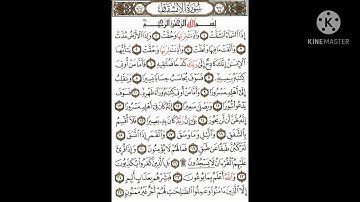 سُورَةُ الِانْشِقَاقِ
MADE WITH
KINEMASTER
بِسْمِ اللَّهِ الرَّحْمَٰنِ الرَّحِيمِ
إِذَا السَّمَاءُ انشَقَّتْ ١ وَأَذِنَتْ لِرَبِّهَا وَحُقَّتْ ٢ وَإِذَا الْأَرْضُ مُدَّتْ
٣ وَأَلْقَتْ مَا فِيهَا وَتَخَلَّتْ ٤ وَأَذِنَتْ لِرَبِّهَا وَحُقَّتْ ٥ يَٰأَيُّهَا
الْإِنسَٰنُ إِنَّكَ كَادِحٌ إِلَىٰ رَبِّكَ كَدْحًا فَمُلَٰقِيهِ ٦ فَأَمَّا مَنْ أُوتِيَ
كِتَٰبَهُ بِيَمِينِهِ ٧ فَسَوْفَ يُحَاسَبُ حِسَابًا يَسِيرًا ٨ وَيَنقَلِبُ
إِلَىٰ أَهْلِهِ مَسْرُورًا ٩ وَأَمَّا مَنْ أُوتِيَ كِتَٰبَهُ وَرَاءَ ظَهْرِهِ ١٠ فَسَوْفَ
يَدْعُوا ثُبُورًا ١١ وَيَصْلَىٰ سَعِيرًا ١٢ إِنَّهُ كَانَ فِي أَهْلِهِ مَسْرُورًا ١٣
إِنَّهُ ظَنَّ أَن لَّن يَحُورَ ١٤ بَلَىٰ إِنَّ رَبَّهُ كَانَ بِهِ بَصِيرًا ١٥ فَلَا أُقْسِمُ
بِالشَّفَقِ ١٦ وَالَّيْلِ وَمَا وَسَقَ ١٧ وَالْقَمَرِ إِذَا اتَّسَقَ ١٨
لَتَرْكَبُنَّ طَبَقًا عَن طَبَقٍ ١٩ فَمَا لَهُمْ لَا يُؤْمِنُونَ ٢٠ وَإِذَا قُرِئَ
عَلَيْهِمُ الْقُرْءَانُ لَا يَسْجُدُونَ ۩ ٢١ بَلِ الَّذِينَ كَفَرُوا يُكَذِّبُونَ
٢٢ وَاللَّهُ أَعْلَمُ بِمَا يُوعُونَ ٢٣ فَبَشِّرْهُم بِعَذَابٍ أَلِيمٍ ٢٤
إِلَّا الَّذِينَ ءَامَنُوا وَعَمِلُوا الصَّٰلِحَٰتِ لَهُمْ أَجْرٌ غَيْرُ مَمْنُونٍ ٢٥